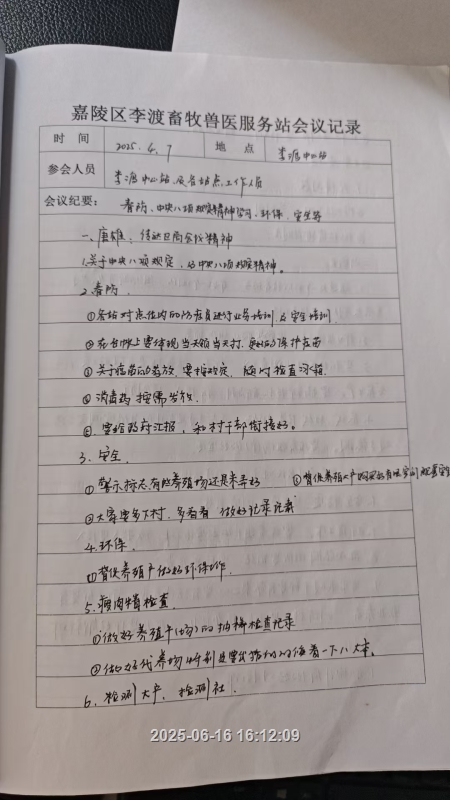 嘉陵区李渡畜牧兽医服务站会议记录
时 间 2025.4.7 地 点 李渡中心站
参会人员 李渡中心站及各站点工作人员
会议纪要: 春防、中央八项规定精神学习、环保、安全等
一、唐雄:传达区局会议精神
1.关于中央八项规定,及中央八项规定精神。
2.春防.
①各站对点位内的防疫员进行业务培训及安全培训.
②在台帐上要体现当天领当天打.
③关于疫苗的发放,要按规定,随时检查冰箱.
④消毒药按需发放.
⑤.要给政府汇报,和村干部衔接好。
3.安全.
①警示标志有的养殖场还是未弄好 ②督促养殖大户
③大家要多下村,多看看 做好记录
4.环保.
①督促养殖户做好环保工作.
5.瘦肉精检查.
①做好养殖户(场)的抽样检查记录
②做好代养场
6.检测大户,检测社.
2025-06-16 16:12:09